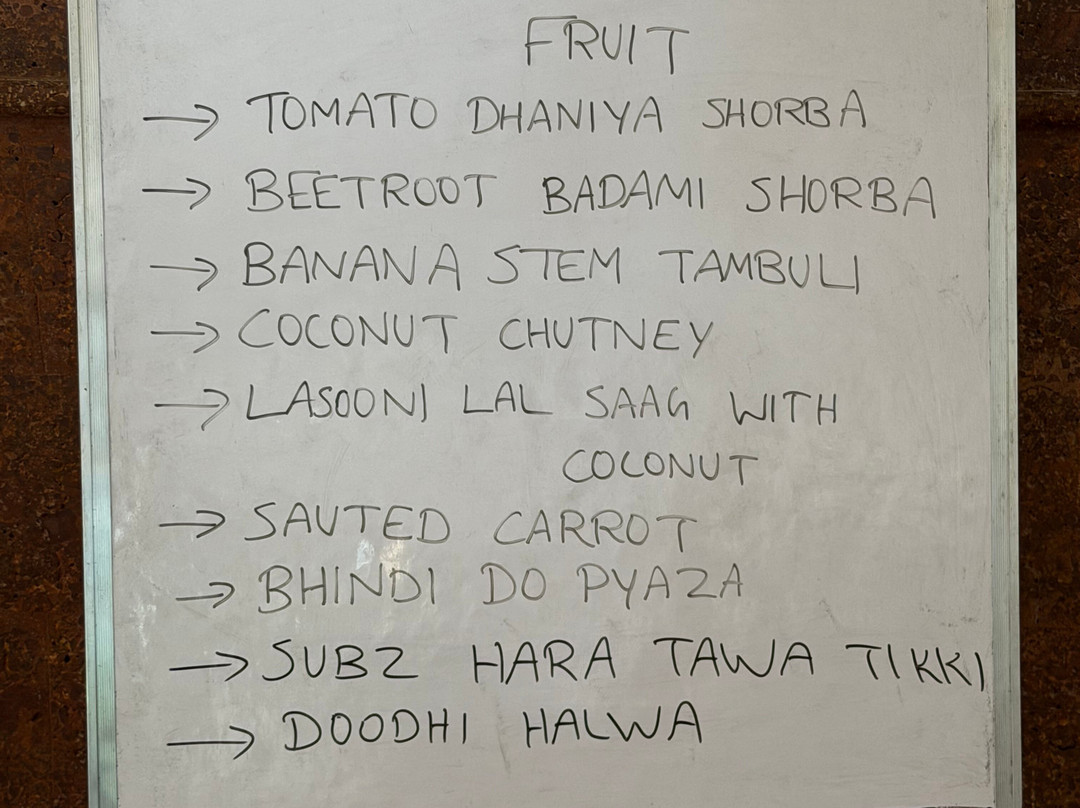 FRUIT
→ TOMATO DHANIYA SHORBA
→ BEETROOT BADAMI SHORBA
→ BANANA STEM TAMBULI
→ COCONUT CHUTNEY
→ LASOONI LAL SAAG WITH
COCONUT
→ SAUTED CARROT
→ BHINDI DO PYAZA
→ SUBZ HARA TAWA TIKKI
→ DOODHI HALWA